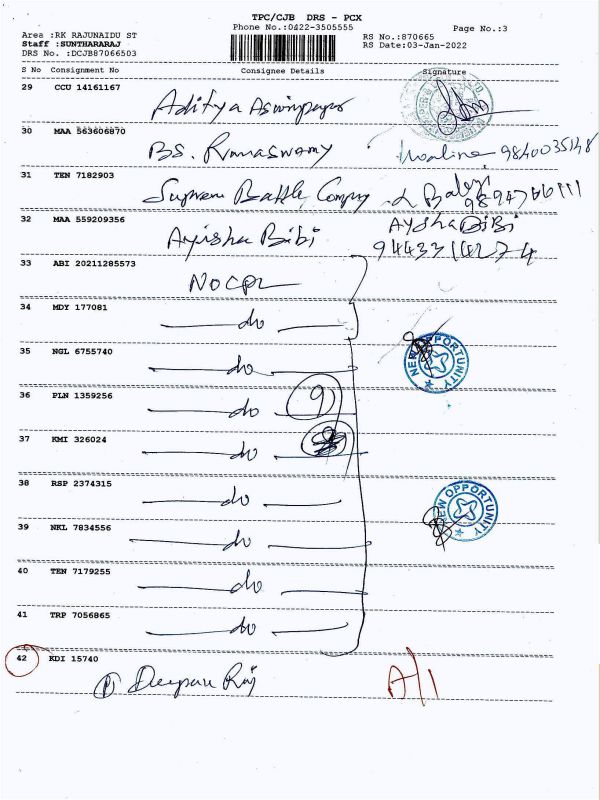 TPC/CJB DRS - PCX
Phone No.:0422-3505555 Page No.:3
Area :RK RAJUNAIDU ST RS No.:870665
Staff :SUNTHARARAJ RS Date:03-Jan-2022
DRS No. :DCJB87066503
S No Consignment No Consignee Details Signature
29 CCU 14161167
Aditya
30 MAA 563606870
BS. Ramaswamy 9840035148
31 TEN 7182903
Supreme Battle Company 9894766111
32 MAA 559209356
Ayisha Bibi AYSHA BiBi
9443314274
33 ABI 20211285573
NOCPL
34 MDY 177081
do
35 NGL 6755740
do NEW OPPORTUNITY
36 PLN 1359256
do 9
37 KMI 326024
do
38 RSP 2374315
do NEW OPPORTUNITY
39 NKL 7834556
do
40 TEN 7179255
do
41 TRP 7056865
do
42 KDI 15740
P Deepan Raj A/1